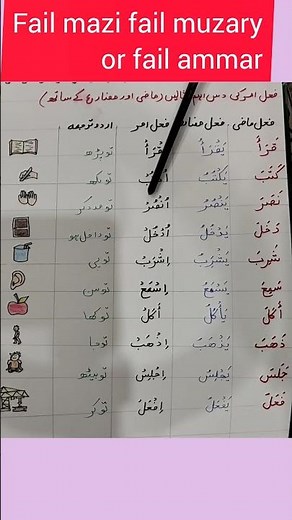 Fail mazi fail muzary
or fail ammar
فعل امر کی دس اہم مثالیں (ماضی اور مضارع کے ساتھ)
فعل ماضی فعل فعل امر اردو ترجمہ
قَرَأَ يَقْرَأُ تو پڑھ
كَتَبَ يَكْتُبُ تو لکھ
نَصَرَ يَنْصُرُ اُنْصُرْ تو مدد کر
دَخَلَ يَدْخُلُ اُدْخُلْ تو داخل ہو
شَرِبَ يَشْرَبُ اِشْرَبْ تو پی
سَمِعَ يَسْمَعُ اِسْمَعْ تو سن
أَكَلَ يَأْكُلُ أُكُلْ تو کھا
ذَهَبَ يَذْهَبُ اِذْهَبْ تو جا
جَلَسَ يَجْلِسُ اِجْلِسْ تو بیٹھ
فَعَلَ يَفْعَلُ اِفْعَلْ تو کر